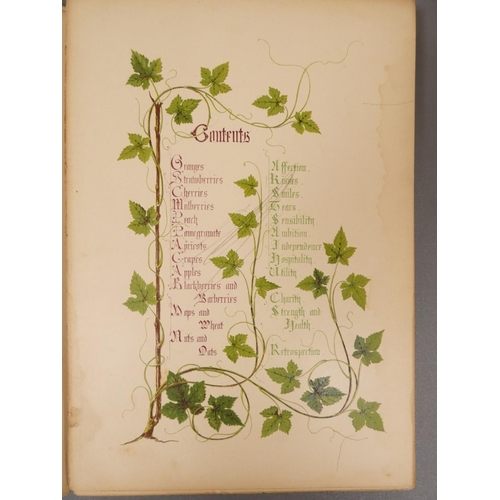 Contents
Oranges
Strawberries
Cherries
Mulberries
Peach
Pomegranate
Apricots
Grapes
Apples
Blackberries and
Barberries
Hops and
Wheat
Nuts and
Oats
Affection.
Smiles.
Tears.
Sensibility.
Ambition.
Independence
Hospitality
Utility
Charity
Strength and
Health
Retrospection